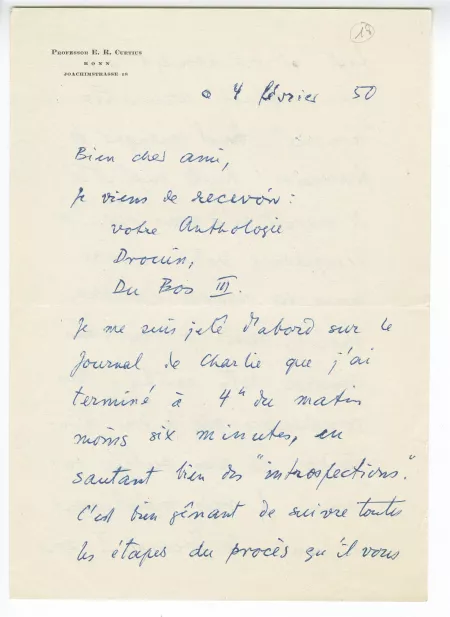 13
PROFESSOR E. R. CURTIUS
BONN
JOACHIMSTRASSE 18
4 février 50
Bien cher ami,
Je viens de recevoir :
votre Anthologie
Drouin,
Du Bos III.
Je me suis jeté d'abord sur le
Journal de Charlie que j'ai
terminé à 4h du matin
moins six minutes, en
sautant bien des "introspections."
C'est bien gênant de suivre toutes
les étapes du procès qu'il vous